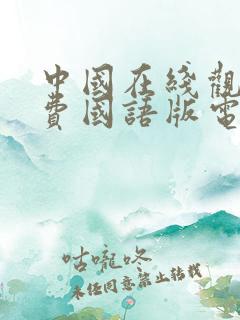 中國在綫觀
費國語版電
咕嚨咚
未经同意禁止转载